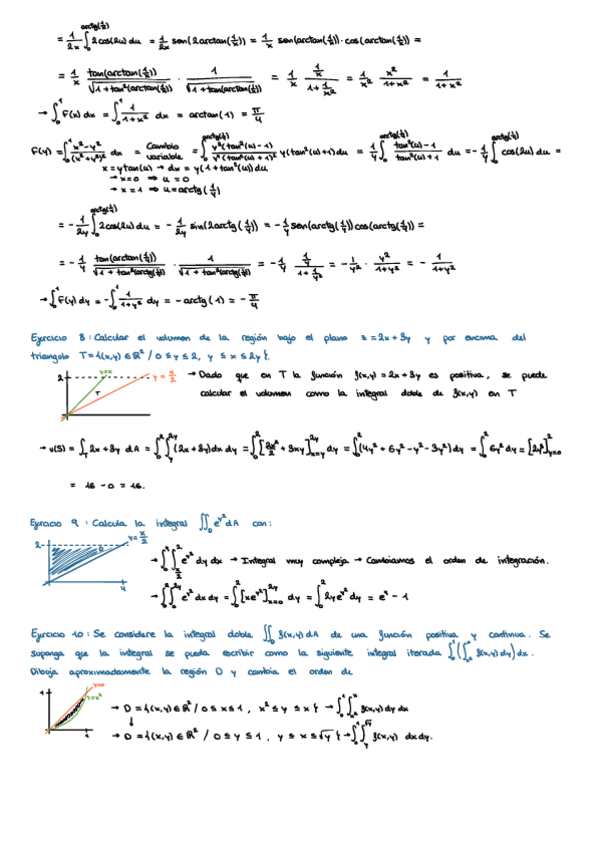 = 1/2x ∫₀^{arctg(1/x)} 2cos(2u) du = 1/2x sen(2arctan(1/x)) = 1/x sen(arctan(1/x))·cos(arctan(1/x)) =
= 1/x tan(arctan(1/x))/√(1+tan²(arctan(1/x))) · 1/√(1+tan²(arctan(1/x))) = 1/x (1/x)/(1+1/x²) = 1/x² x²/(1+x²) = 1/(1+x²)
→ ∫₀¹ F(x) dx = ∫₀¹ 1/(1+x²) dx = arctan(1) = π/4
F(y) = ∫₀¹ (x²-y²)/(x²+y²)² dx = Cambio variable = ∫₀^{arctg(1/y)} y²(tan²(u)-1)/y⁴(tan²(u)+1)² y(tan²(u)+1) du = 1/y ∫₀^{arctg(1/y)} (tan²(u)-1)/(tan²(u)+1) du = -1/y ∫₀^{arctg(1/y)} cos(2u) du =
x = y tan(u) → dx = y(1+tan²(u)) du
→ x=0 ⇒ u=0
→ x=1 ⇒ u=arctg(1/y)
= -1/2y ∫₀^{arctg(1/y)} 2cos(2u) du = -1/2y sin(2arctg(1/y)) = -1/y sen(arctg(1/y))cos(arctg(1/y)) =
= -1/y tan(arctan(1/y))/√(1+tan²(arctg(1/y))) · 1/√(1+tan²(arctg(1/y))) = -1/y (1/y)/(1+1/y²) = -1/y² · y²/(1+y²) = -1/(1+y²)
→ ∫₀¹ F(y) dy = -∫₀¹ 1/(1+y²) dy = -arctg(1) = -π/4
Ejercicio 8: Calcular el volumen de la región bajo el plano z = 2x + 3y y por encima del
triangulo T = {(x,y) ∈ ℝ² / 0 ≤ y ≤ 2, y ≤ x ≤ 2y}.
2 y=x y = x/2 → Dado que en T la función f(x,y) = 2x + 3y es positiva, se puede
T calcular el volumen como la integral doble de f(x,y) en T
→ v(S) = ∫_T 2x+3y dA = ∫₀² ∫_y^{2y} (2x+3y) dx dy = ∫₀² [2x²/2 + 3xy]_{x=y}^{2y} dy = ∫₀² (4y² + 6y² - y² - 3y²) dy = ∫₀² 6y² dy = [2y³]²_{y=0}
= 16 - 0 = 16.
Ejercicio 9: Calcula la integral ∬_D e^{y²} dA con:
2 D y = x/2 4
→ ∫₀⁴ ∫_{x/2}² e^{y²} dy dx → Integral muy compleja → Cambiamos el orden de integración.
→ ∫₀² ∫₀^{2y} e^{y²} dx dy = ∫₀² [xe^{y²}]_{x=0}^{2y} dy = ∫₀² 2ye^{y²} dy = e⁴ - 1
Ejercicio 10: Se considera la integral doble ∬_D f(x,y) dA de una función positiva y continua. Se
suponga que la integral se pueda escribir como la siguiente integral iterada ∫₀¹ (∫_{x²}^x f(x,y) dy) dx.
Dibuja aproximadamente la región D y cambia el orden de
1 y=x y=x² 1
→ D = {(x,y) ∈ ℝ² / 0 ≤ x ≤ 1, x² ≤ y ≤ x} → ∫₀¹ ∫_{x²}^x f(x,y) dy dx
↓
→ D = {(x,y) ∈ ℝ² / 0 ≤ y ≤ 1, y ≤ x ≤ √y} → ∫₀¹ ∫_y^{√y} f(x,y) dx dy.